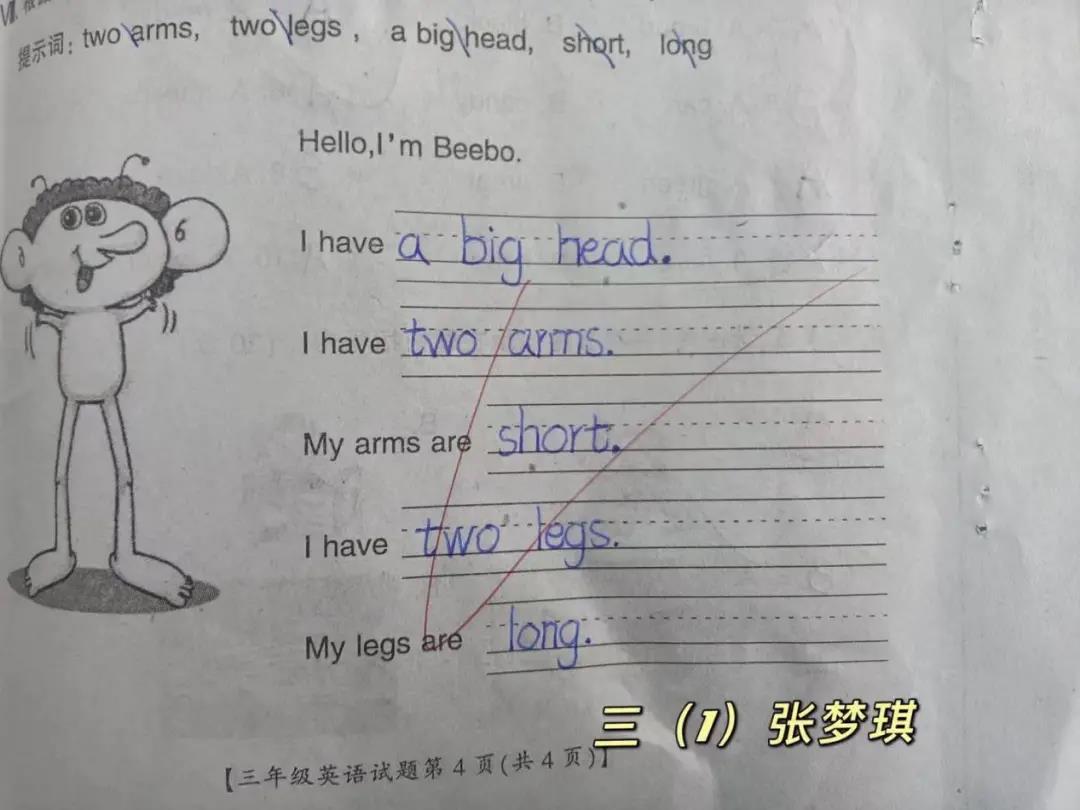 Ⅶ. 根
提示词: two arms, two legs , a big head, short, long
Hello,I'm Beebo.
I have a big head.
I have two arms.
My arms are short.
I have two legs.
My legs are long.
三（1）张梦琪
【三年级英语试题第 4 页(共 4 页)】